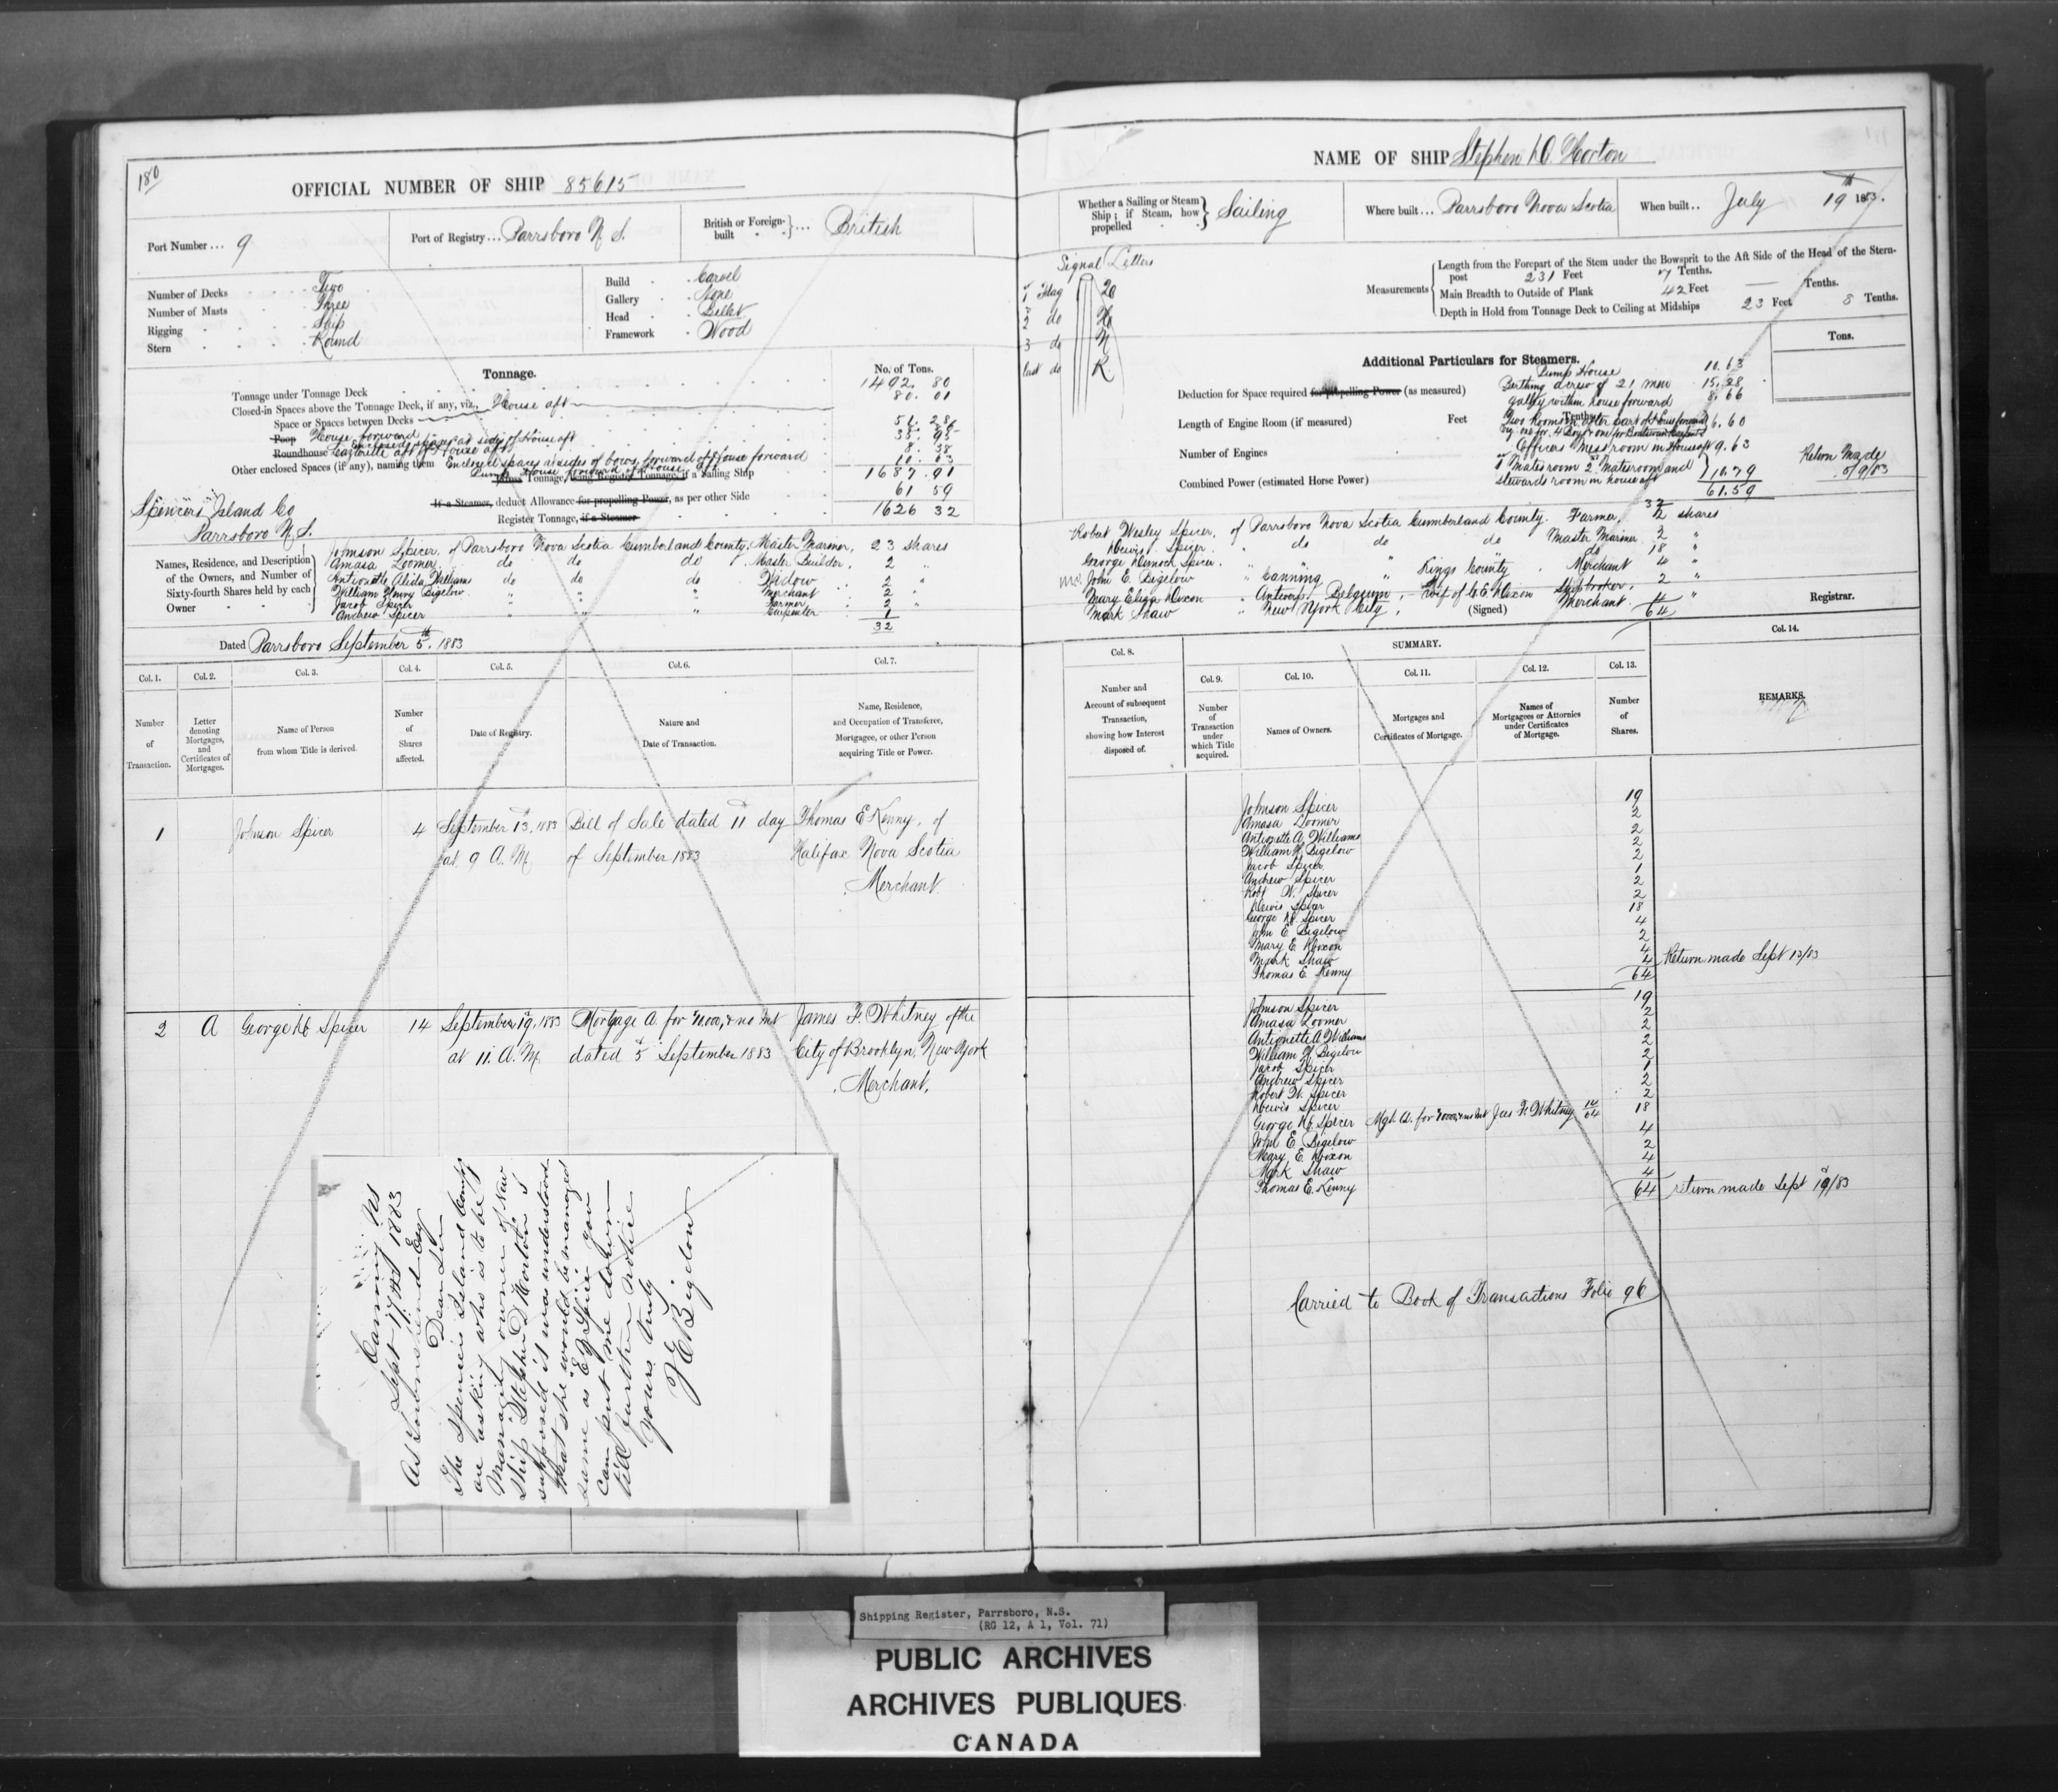 180
OFFICIAL NUMBER OF SHIP 85615
Port Number ... 9
Port of Registry ... Parrsboro N. S.
British or Foreign-built ... British
Number of Decks Two
Number of Masts Three
Rigging Ship
Stern Round
Build Carvel
Gallery None
Head Billet
Framework Wood
Tonnage.
No. of Tons.
Tonnage under Tonnage Deck 1492. 80
Closed-in Spaces above the Tonnage Deck, if any, viz., House aft 80. 01
Space or Spaces between Decks
Poop House forward
Enclosed spaces at sides of House aft
Roundhouse
Other enclosed Spaces (if any), naming them Enclosed spaces at sides of bows, forward of House forward
Pump House forward of House aft 10. 63
Gross Tonnage, being Register Tonnage, if a Sailing Ship 1687. 91
If a Steamer, deduct Allowance for propelling Power, as per other Side 61 59
Register Tonnage, if a Steamer 1626 32
Spencers Island Co
Parrsboro N. S.
Names, Residence, and Description of the Owners, and Number of Sixty-fourth Shares held by each Owner
Johnson Spicer of Parrsboro Nova Scotia Cumberland County, Master Mariner, 23 shares
Amasa Loomer do do do Master Builder, 2 "
Antionette Alida William do do do Widow 2 "
William Henry Bigelow " " " Merchant 2 "
Jacob Spicer " " " Farmer 2 "
Andrew Spicer " " " Carpenter 1
32
Dated Parrsboro September 5th. 1883
Col. 1. Col. 2. Col. 3. Col. 4. Col. 5. Col. 6. Col. 7.
Number of Transaction.
Letter denoting Mortgages, and Certificates of Mortgages.
Name of Person from whom Title is derived.
Number of Shares affected.
Date of Registry.
Nature and Date of Transaction.
Name, Residence, and Occupation of Transferee, Mortgagee, or other Person acquiring Title or Power.
1 Johnson Spicer 4 September 13, 1883 Bill of Sale dated 11 day Thomas E Kenny, of
at 9 A. M. of September 1883 Halifax Nova Scotia
Merchant
2 A George H Spicer 14 September 19, 1883 Mortgage A. for dated 5 September 1883 James F. Whitney of the
at 11. A. M. City of Brooklyn, New York
Merchant,
Canning NS
Sept 17th 1883
As Townshend Esq
Dear Sir
The Spencers Island Comp
are asking who is to be
Managing owner of New
Ship "Stephen D Horton" I
supposed it was understood
that she would be managed
same as E J Spicer You
can put me down
till further notice
Yours truly
J E Bigelow
NAME OF SHIP Stephen D Horton
Whether a Sailing or Steam Ship; if Steam, how propelled Sailing
Where built ... Parrsboro Nova Scotia
When built .. July 19th 1883.
Signal Letters
1st Flag
2 do
3 do
last do
Measurements
Length from the Forepart of the Stem under the Bowsprit to the Aft Side of the Head of the Stern-
post 231 Feet 7 Tenths.
Main Breadth to Outside of Plank 42 Feet — Tenths.
Depth in Hold from Tonnage Deck to Ceiling at Midships 23 Feet 8 Tenths.
Additional Particulars for Steamers.
Tons.
Pump House 10. 63
Deduction for Space required for propelling Power (as measured)
Berthing a crew of 21 men 15. 28
Galley within house forward 8. 66
Length of Engine Room (if measured) Feet Tenths
6. 60
Number of Engines
Officers Mess room in House aft 9. 63
Combined Power (estimated Horse Power)
1st Mates room 2nd Mates room and
Stewards room in house aft 10.79
61.59
Return Made
5/9/83
32
Robert Wesley Spicer, of Parrsboro Nova Scotia Cumberland County. Farmer, 2 shares
Dewis Spicer. " do do do Master Mariner 2 "
George Dimock Spicer. " do 18 "
M.O. John E. Bigelow " Canning " Kings County . Merchant 4 "
Mary Eliza Dixon " Antwerp Belgium, Wife of Dixon Shipbroker, 2 "
Mark Shaw " New York City, Merchant. 4 "
(Signed)
64
Registrar.
Col. 8.
SUMMARY.
Col. 9. Col. 10. Col. 11. Col. 12. Col. 13. Col. 14.
Number and Account of subsequent Transaction, showing how Interest disposed of.
Number of Transaction under which Title acquired.
Names of Owners.
Mortgages and Certificates of Mortgage.
Names of Mortgagees or Attornies under Certificates of Mortgage.
Number of Shares.
REMARKS.
Johnson Spicer 19
Amasa Loomer 2
Antionette A. Williams 2
William H. Bigelow 2
Jacob Spicer 2
Andrew Spicer 1
Robt W. Spicer 2
Dewis Spicer 2
George D. Spicer 18
John E. Bigelow 4
Mary E. Dixon 2
Mark Shaw 4
Thomas E. Kenny 4
64
Return made Sept 13/83
Johnson Spicer 19
Amasa Loomer 2
Antionette A. Williams 2
William H. Bigelow 2
Jacob Spicer 2
Andrew Spicer 1
Robert W. Spicer 2
Dewis Spicer 2
George D. Spicer Mge A. for Jas F. Whitney 14/64 18
John E. Bigelow 4
Mary E. Dixon 2
Mark Shaw 4
Thomas E. Kenny 4
64
return made Sept 19/83
Carried to Book of Transactions Folio 96
Shipping Register, Parrsboro, N.S.
(RG 12, A 1, Vol. 71)
PUBLIC ARCHIVES
ARCHIVES PUBLIQUES
CANADA